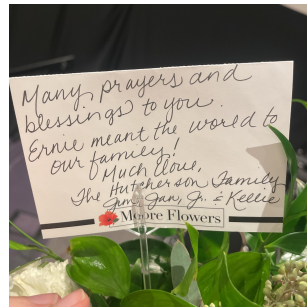 Many prayers and
blessings to you.
Ernie meant the world to
our family!
Much love,
The Hutcherson Family
Jim, Jan, Jr. & Kellie
Moore Flowers